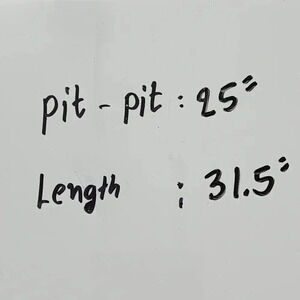 pit - pit : 25"
Length : 31.5"